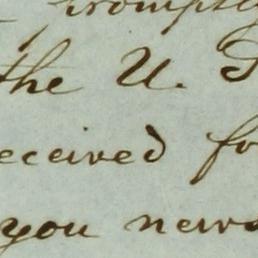 promptly
the U. S
eceived fo
you news